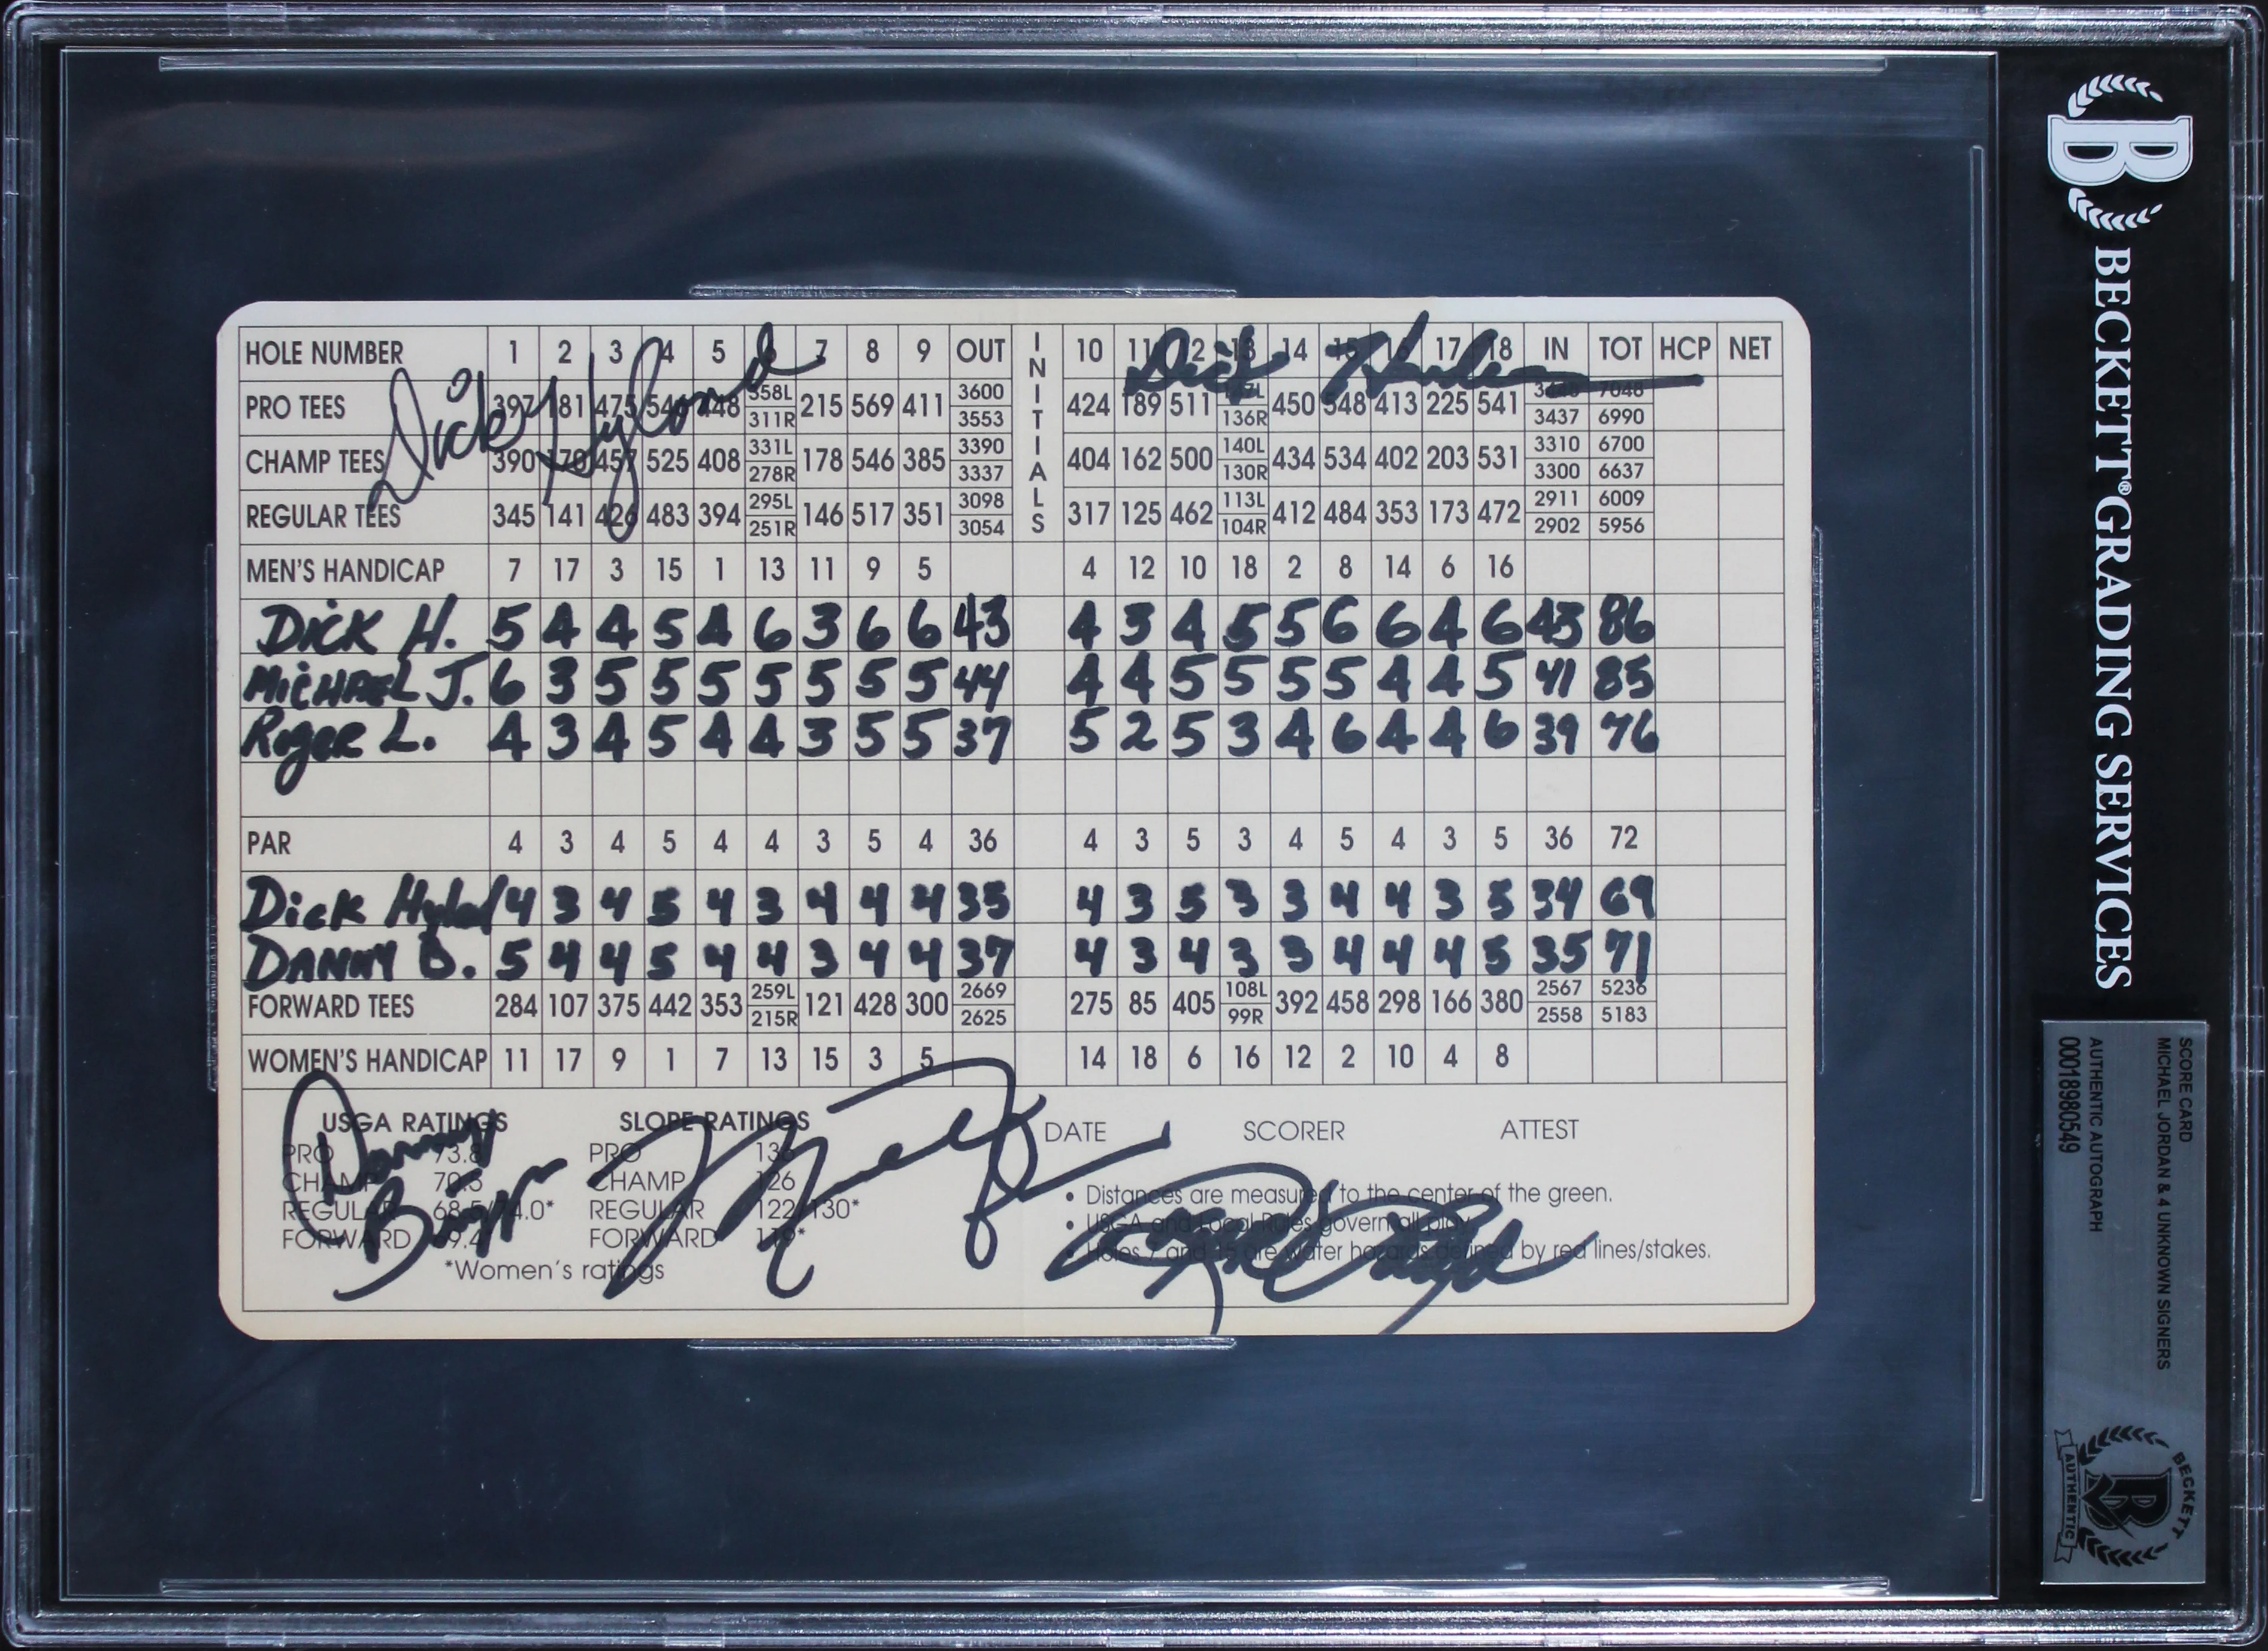 HOLE NUMBER 1 2 3 4 5 6 7 8 9 OUT INITIALS 10 11 12 13 14 15 16 17 18 IN TOT HCP NET
Dick Hyland
Dick
PRO TEES 397 181 475 541 448 358L 311R 215 569 411 3600 3553 424 189 511 136R 450 548 413 225 541 3448 3437 7048 6990
CHAMP TEES 390 170 457 525 408 331L 278R 178 546 385 3390 3337 404 162 500 140L 130R 434 534 402 203 531 3310 3300 6700 6637
REGULAR TEES 345 141 426 483 394 295L 251R 146 517 351 3098 3054 317 125 462 113L 104R 412 484 353 173 472 2911 2902 6009 5956
MEN'S HANDICAP 7 17 3 15 1 13 11 9 5 4 12 10 18 2 8 14 6 16
DICK H. 5 4 4 5 4 6 3 6 6 43 4 3 4 5 5 6 6 4 6 43 86
MICHAEL J. 6 3 5 5 5 5 5 5 5 44 4 4 5 5 5 5 4 4 5 41 85
ROGER L. 4 3 4 5 4 4 3 5 5 37 5 2 5 3 4 6 4 4 6 39 76
PAR 4 3 4 5 4 4 3 5 4 36 4 3 5 3 4 5 4 3 5 36 72
Dick Hylad 4 3 4 5 4 3 4 4 4 35 4 3 5 3 3 4 4 3 5 34 69
DANNY B. 5 4 4 5 4 4 3 4 4 37 4 3 4 3 3 4 4 4 5 35 71
FORWARD TEES 284 107 375 442 353 259L 215R 121 428 300 2669 2625 275 85 405 108L 99R 392 458 298 166 380 2567 2558 5236 5183
WOMEN'S HANDICAP 11 17 9 1 7 13 15 3 5 14 18 6 16 12 2 10 4 8
USGA RATINGS SLOPE RATINGS
PRO 73.8 PRO
CHAMP 70.3 CHAMP 126
REGULAR 68.5/74.0* REGULAR 122/130*
FORWARD 69.4* FORWARD 119*
*Women's ratings
Danny Briggs
DATE SCORER ATTEST
• Distances are measured to the center of the green.
• USGA and Local Rules govern all play.
• Holes 7 and 15 are water hazards defined by red lines/stakes.
BECKETT® GRADING SERVICES
SCORE CARD
MICHAEL JORDAN & 4 UNKNOWN SIGNERS
AUTHENTIC AUTOGRAPH
00018980549
BECKETT
AUTHENTIC